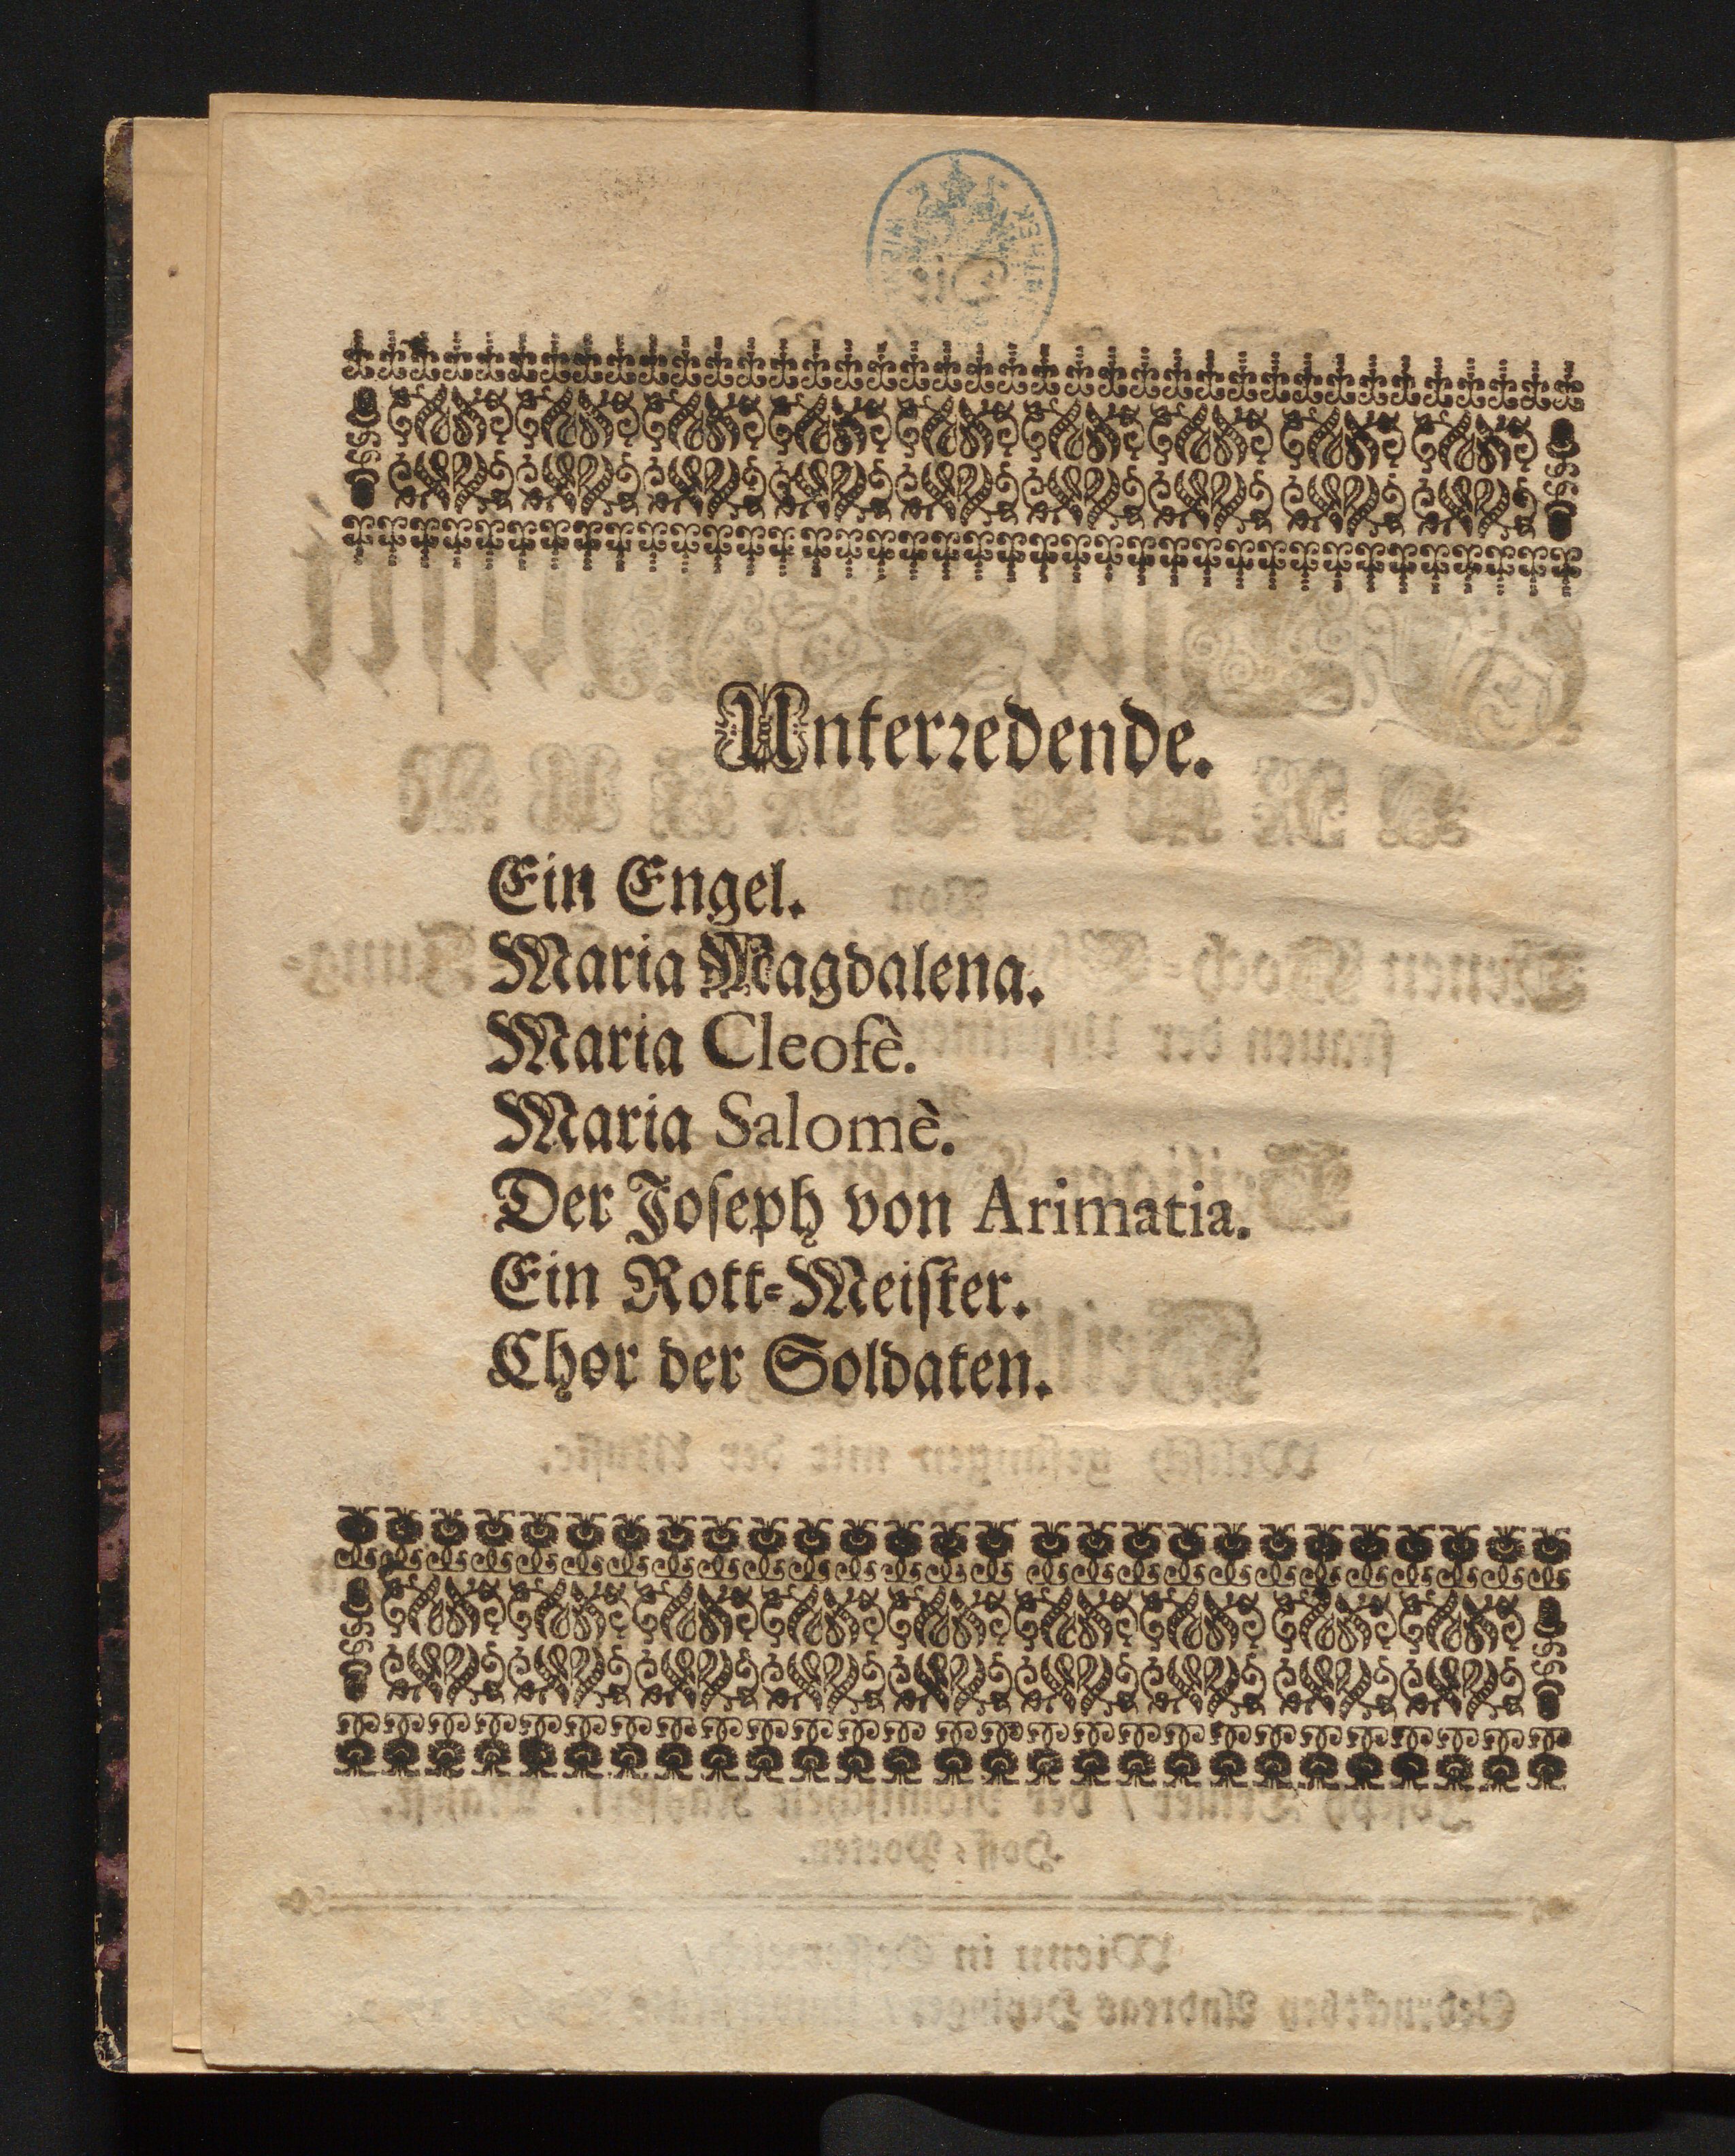 Unterꝛedende.
Ein Engel.
Maria Magdalena.
Maria Cleofè.
Maria Salomè.
Der Joſeph von Arimatia.
Ein Rott-Meiſter.
Chor der Soldaten.